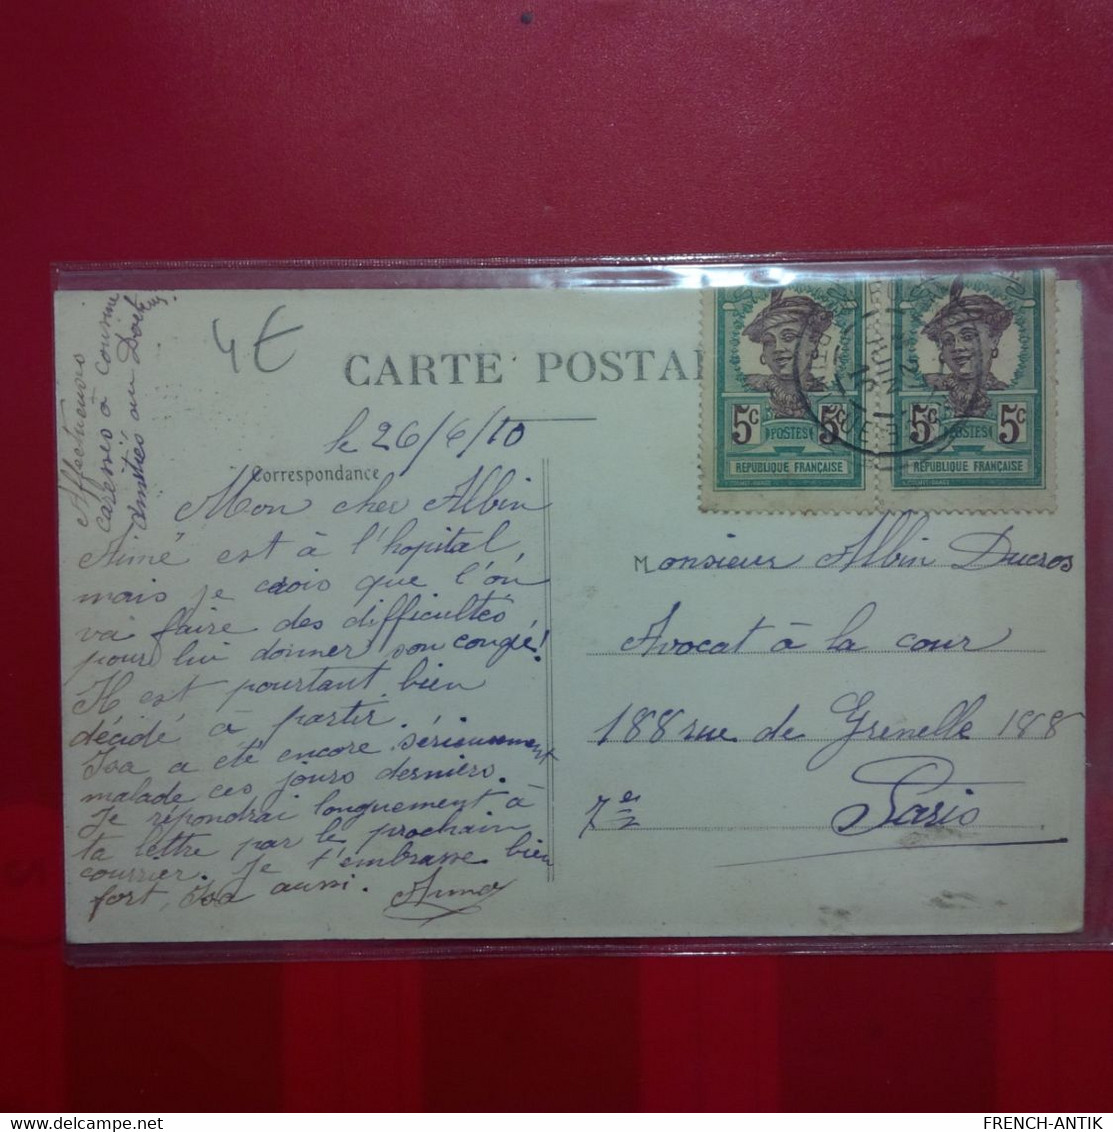 4€
CARTE POSTA
le 26/6/10
Correspondance
Mon cher Albin
Aimé est à l'hopital,
mais je crois que l'on
va faire des difficultés
pour lui donner son congé!
Il est pourtant bien
décidé à partir.
a été encore sérieusement
malade ces jours derniers.
Je répondrai longuement à
ta lettre par le prochain
courrier. Je t'embrasse bien
fort, aussi.
Affectueuses
caresses à cousine
amitiés au
5c POSTES 5c
RÉPUBLIQUE FRANÇAISE
5c POSTES 5c
RÉPUBLIQUE FRANÇAISE
Monsieur Albin Ducros
Avocat à la cour
188 rue de Grenelle 188
7e
Paris
FRENCH-ANTIK